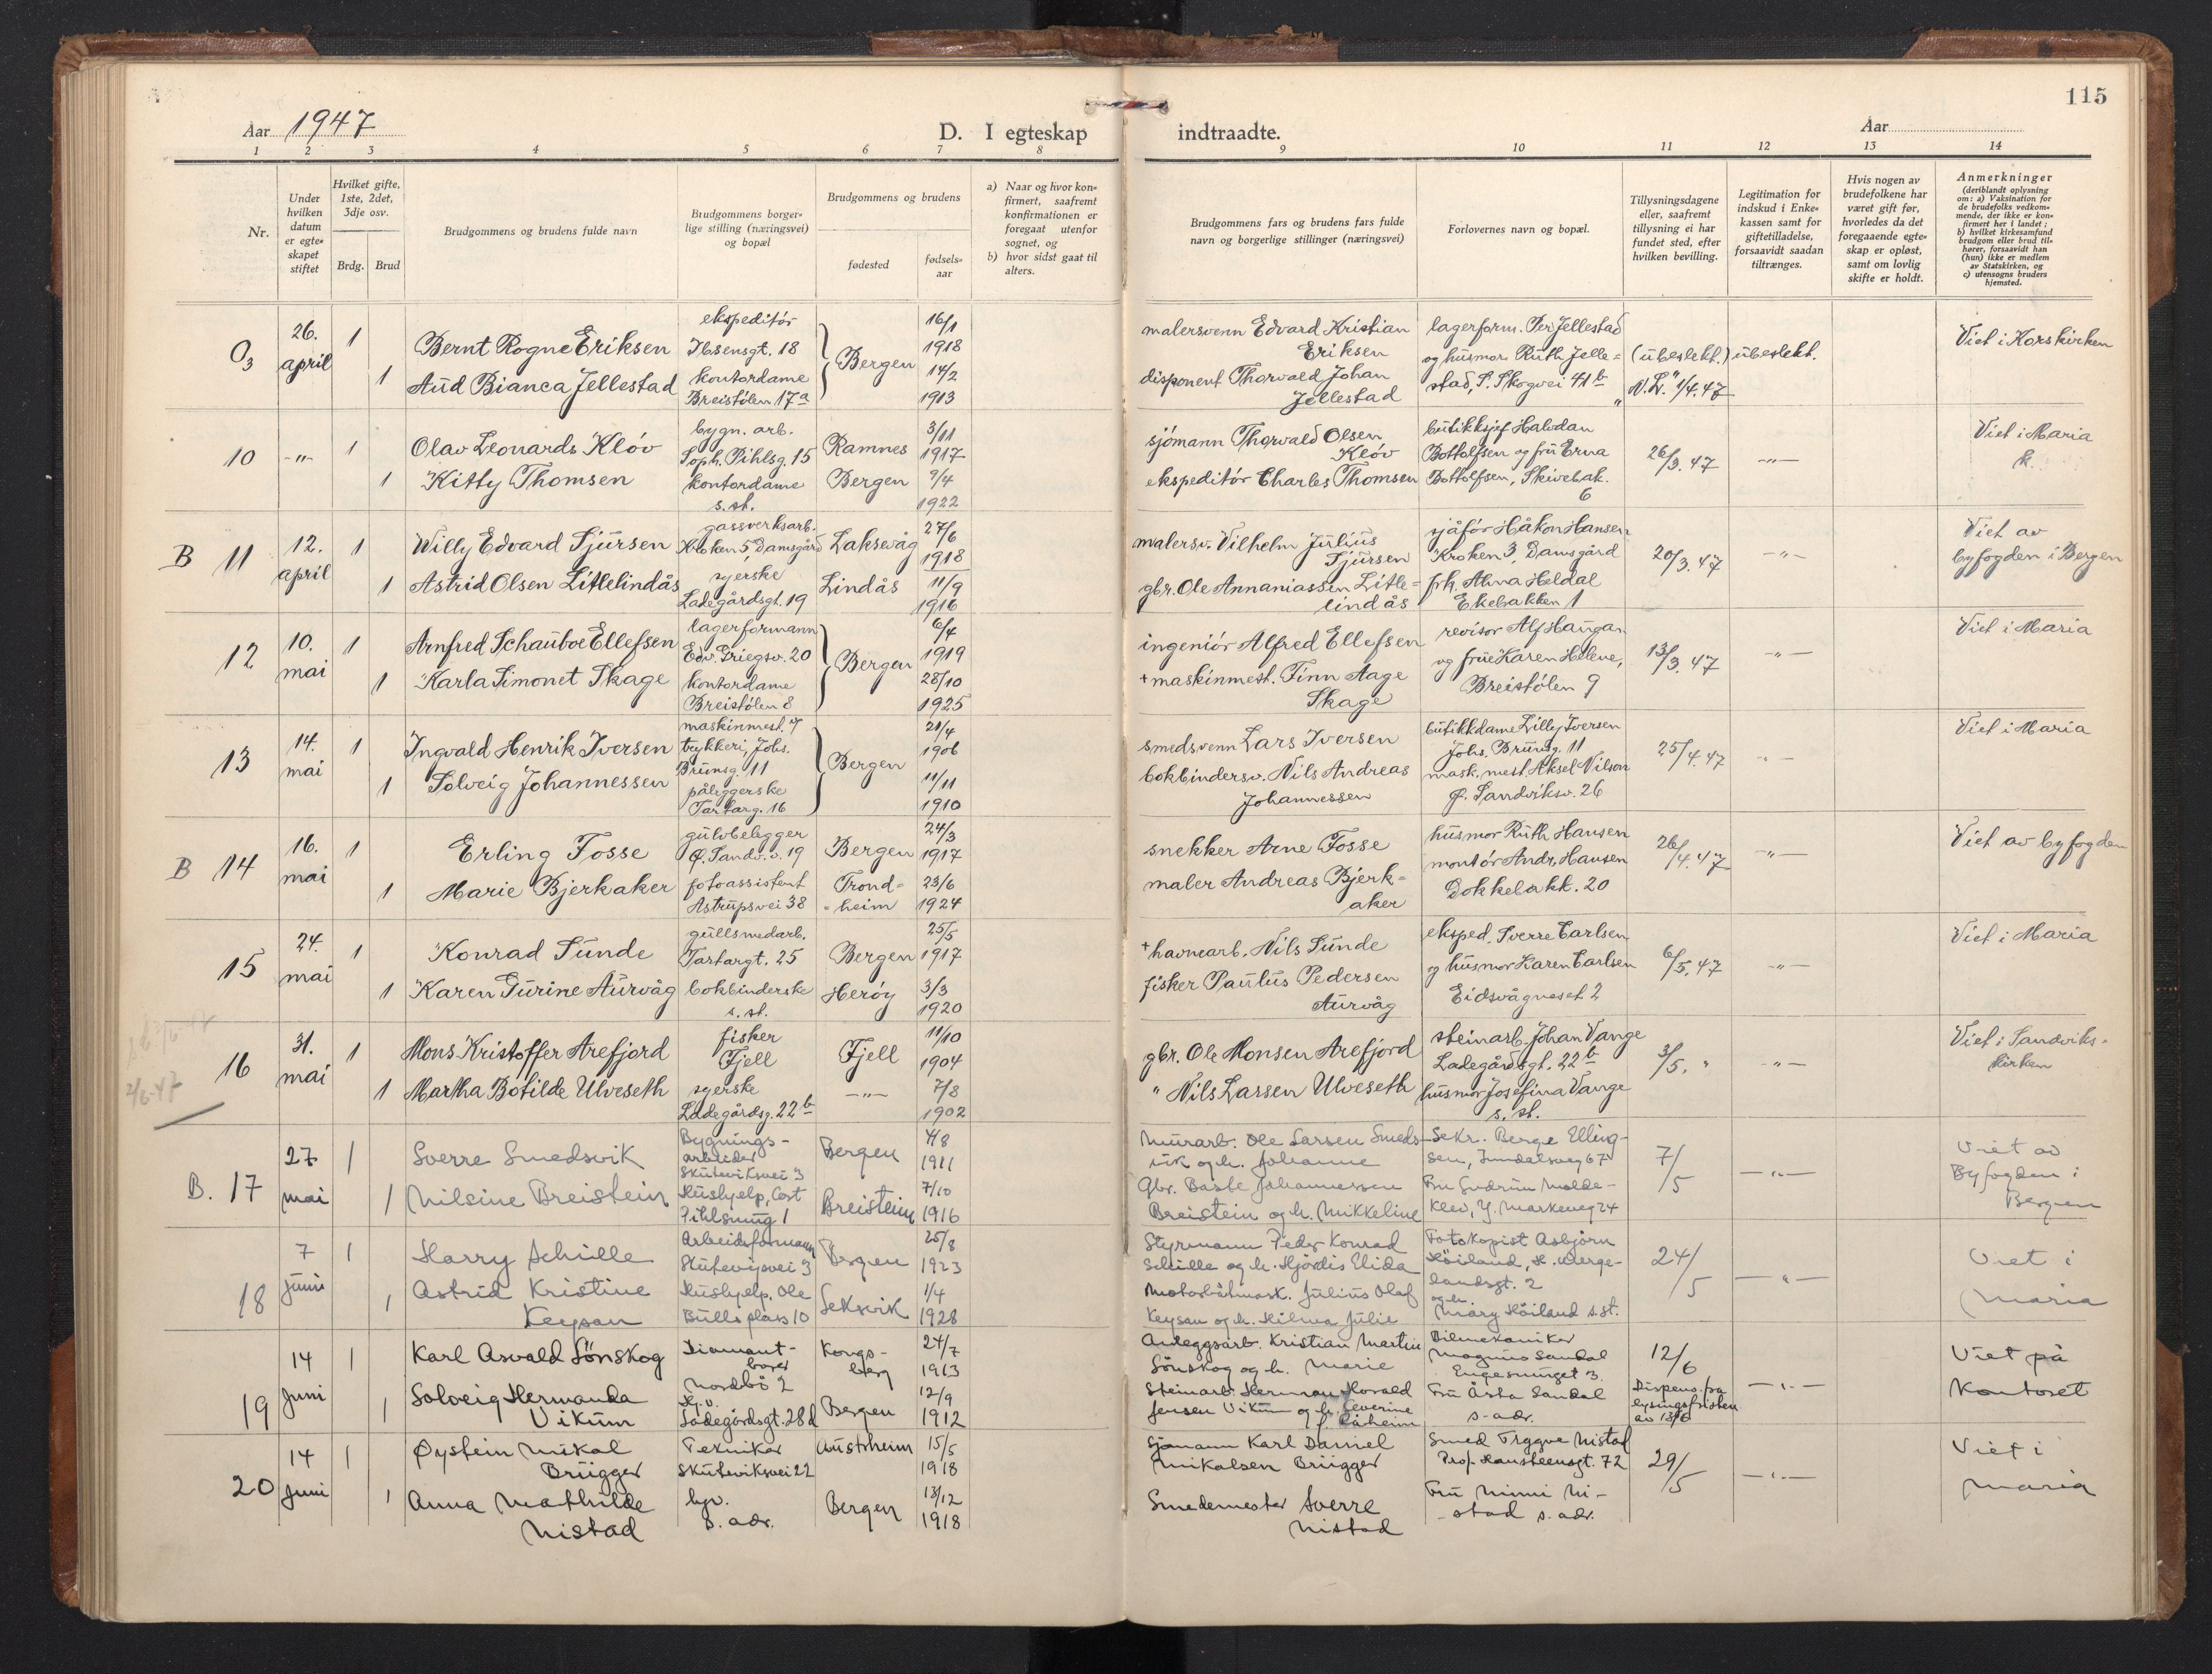 115
Aar 1947
D. I egteskap indtraadte.
Aar
1 2 3 4 5 6 7 8 9 10 11 12 13 14
Nr.
Under hvilken datum er egteskapet stiftet
Hvilket gifte, 1ste, 2det, 3dje osv.
Brdg. Brud
Brudgommens og brudens fulde navn
Brudgommens borgerlige stilling (næringsvei) og bopæl
Brudgommens og brudens
fødested
fødselsaar
a) Naar og hvor konfirmert, saafremt konfirmationen er foregaat utenfor sognet, og
b) hvor sidst gaat til alters.
Brudgommens fars og brudens fars fulde navn og borgerlige stillinger (næringsvei)
Forlovernes navn og bopæl.
Tillysningsdagene eller, saafremt tillysning ei har fundet sted, efter hvilken bevilling.
Legitimation for indskud i Enkekassen samt for giftetilladelse, forsaavidt saadan tiltrænges.
Hvis nogen av brudefolkene har været gift før, hvorledes da det foregaaende egteskap er opløst, samt om lovlig skifte er holdt.
Anmerkninger
(deriblandt oplysning om: a) Vaksination for de brudefolks vedkommende, der ikke er konfirmert her i landet;
b) hvilket kirkesamfund brudgom eller brud tilhører, forsaavidt han (hun) ikke er medlem av Statskirken, og
c) utensogns bruders hjemsted.
26. april 1 Bernt Rogne Eriksen ekspeditör Ibsensgt. 18 Bergen 16/1 1918
1 Aud Bianca Jellestad kontordame Breistølen 17a 14/2 1913
malersvenn Edvard Kristian Eriksen
disponent Thorvald Johan Jellestad
lagerform. Per Jellestad og husmor Ruth Jellestad, S. Skogvei 41b
(ubeslekt.) ubeslekt.
N.L." 1/4.47
Viet i Korskirken
10 -"- 1 Olav Leonards Klöv bygn. arb. Soph. Pihlsg. 15 Ramnes 3/11 1917
1 Kitty Thomsen kontordame s.st. Bergen 9/4 1922
sjömann Thorvald Olsen Klöv
ekspeditör Charles Thomsen
butikksjef Halvdan Bottolfsen og frü Erna Bottolfsen, Skivebak. 6
26/3.47 -"-
Viet i Maria k.
B 11 12. april 1 Willy Edvard Sjursen gassverksarb. Kroken 5, Damsgård Laksevåg 27/6 1918
1 Astrid Olsen Litlelindås syerske Ladegårdsgt. 19 Lindås 11/9 1916
malersv. Vilhelm Julius Sjursen
gbr. Ole Annaniassen Litlelindås
sjåför Håkon Hansen Kroken 3, Damsgård
frk. Alma Heldal Ekebakken 1
20/3.47 -"-
Viet av byfogden i Bergen
12 10. mai 1 Arnfred Schauboe Ellefsen lagerformann Edv. Griegsv. 20 Bergen 6/4 1919
1 Karla Simonet Skage kontordame Breistölen 8 28/10 1925
ingeniör Alfred Ellefsen
+ maskinmest. Finn Aage Skage
revisor Alf Haugan og frue Karen Helene, Breistölen 9
13/3.47 -"-
Viet i Maria
13 14. mai 1 Ingvald Henrik Iversen maskinmest. v/ trykkeri, Johs. Brunsg. 11 Bergen 21/4 1906
1 Solveig Johannessen påleggerske Tartarg. 16 11/11 1910
smedsvenn Lars Iversen
bokbindersv. Nils Andreas Johannessen
butikkdame Lilly Iversen Johs. Brunsg. 11
mask. mest. Aksel Nilson Ø. Sandviksv. 26
25/4.47 -"-
Viet i Maria
B 14 16. mai 1 Erling Fosse gulvbelegger Ø. Sandv. v. 19 Bergen 24/3 1917
1 Marie Bjerkaker fotoassistent Astrupsvei 38 Trondheim 23/6 1924
snekker Arne Fosse
maler Andreas Bjerkaker
husmor Ruth Hansen
montör Andr. Hansen Dokkebakk. 20
26/4.47 -"-
Viet av byfogden
15 24. mai 1 Konrad Sunde gullsmedarb. Tartargt. 25 Bergen 25/5 1917
1 Karen Gurine Aurvåg bokbinderske s.st. Heröy 3/3 1920
+ havnearb. Nils Sunde
fisker Paulus Pedersen Aurvåg
eksped. Sverre Carlsen og husmor Karen Carlsen Eidsvågneset 2
6/5.47 -"-
Viet i Maria
2/6-47
16 31. mai 1 Mons Kristoffer Arefjord fisker Fjell Fjell 11/10 1904
1 Martha Botilde Ulveseth syerske Ladegårdsg. 22b -"- 7/8 1902
gbr. Ole Monsen Arefjord
" Nils Larsen Ulveseth
steinarb. Johan Vange Ladegårdsgt. 22b
husmor Josefina Vange s.st.
3/5. " -"-
Viet i Sandvikskirken
B. 17 27 mai 1 Sverre Smedsvik Bygningsarbeider Skuteviksvei 3 Bergen 4/8 1911
1 Nilsine Breistein Hushjelp, Cort Pihlsmug 1 Breistein 7/10 1916
Murarb. Ole Larsen Smedsvik og h. Johanne
Gbr. Johannessen Breistein og h. Mikkeline
Sekr. Berge Ellingsen,
Fru Gudrun Moldeklev, Y. Markeveg 24
7/5 -"-
Viet av Byfogden i Bergen
18 7 juni 1 Harry Schille Arbeidsformann Skuteviksvei 3 Bergen 25/8 1923
1 Astrid Kristine Keysan Hushjelp, Ole Bulls plass 10 Seksvik 1/4 1928
Styrmann Peder Konrad Schille og h. Hjördis Elida
Motorbåtmask. Julius Olaf Keysan og h. Hilma Julie
Fotokopist Asbjörn Höiland, H. Wergelandsgt. 2
og h. Mary Höiland s.st.
24/5 -"-
Viet i Maria
19 14 Juni 1 Karl Asvald Lönskog Diamantborer Nordbö 2 Kongsberg 24/7 1913
1 Solveig Hermanda Vikum Hj.v. Ladegårdsgt. 28d Bergen 12/9 1912
Anleggsarb. Kristian Martin Lönskog og h. Marie
Steinarb. Herman Horald Jensen Vikum og h. Severine f. Råheim
Bilmekaniker Magnus Sandal Engesmuget 3.
Fru Åsta Sandal s-adr.
12/6 Dispens. fra lysingsfristen av 13/6 -"-
Viet på Kontoret
20 14 Juni 1 Øystein Mikal Brügger Tekniker Skuteviksvei 22 Austrheim 15/5 1918
1 Anna Mathilde Nistad hjv. s. adr. Bergen 13/12 1918
Sjömann Karl Daniel Mikalsen Brügger
Smedemester Sverre Nistad
Smed Trygve Nistad Prof. Hansteensgt. 72
Fru Minni Nistad s. adr.
29/5 -"-
Viet i Maria